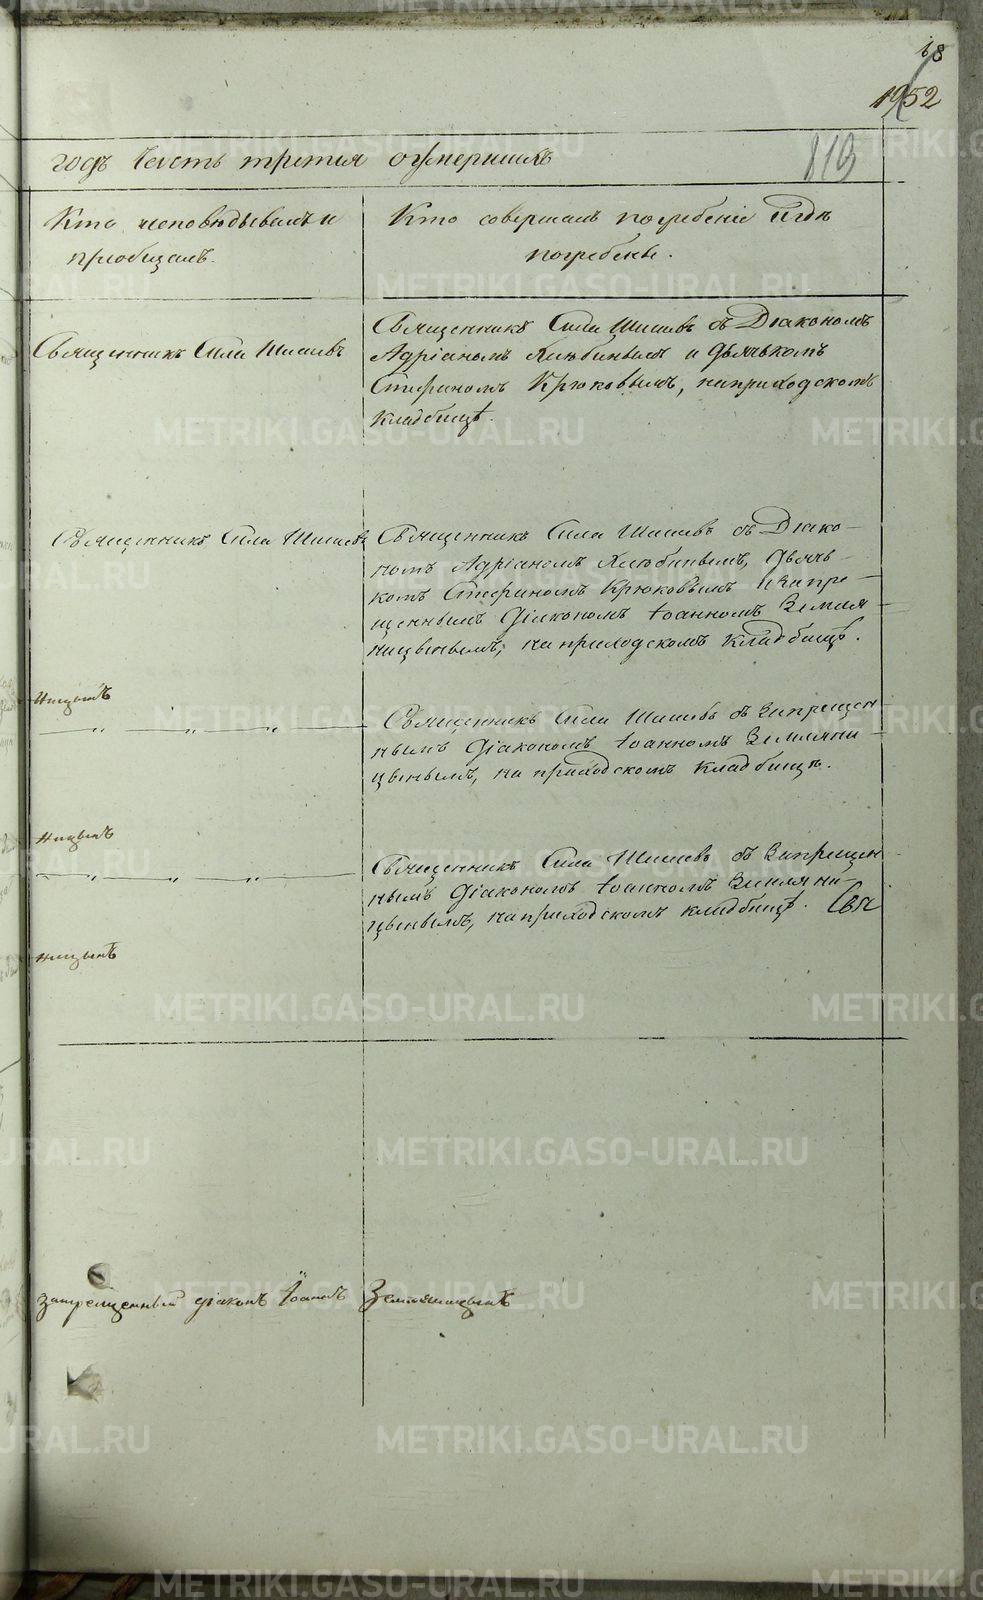 18
1952
годъ Часть третія оумершихъ
819
Кто исповѣдывалъ и
приобщалъ.
Кто совершалъ погребеніе и гдѣ
погребены.
Священникъ Сила Шишевъ
Священникъ Сила Шишевъ съ Діакономъ
Адріаномъ Хлюбинымъ и дьячькомъ
Стефаномъ Крюковымъ, на приходскомъ
кладбищѣ.
Священникъ Сила Шишевъ
Священникъ Сила Шишевъ съ Діако-
номъ Адріаномъ Хлюбинымъ, дьячь-
комъ Стефаномъ Крюковымъ и запре-
щеннымъ діакономъ Іоанномъ Земляни-
цынымъ, на приходскомъ кладбищѣ.
Священникъ Сила Шишевъ съ запрещен-
нымъ діакономъ Іоанномъ Земляни-
цынымъ, на приходскомъ кладбищѣ.
Священникъ Сила Шишевъ съ запрещен-
нымъ діакономъ Іоанномъ Земляни-
цынымъ, на приходскомъ кладбищѣ. Свя
запрещенный діаконъ Іоаннъ Земляницынъ
METRIKI.GASO-URAL.RU